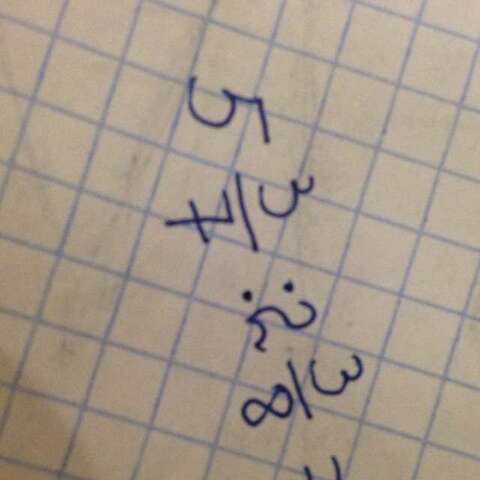 5 3/7 : 2 3/8